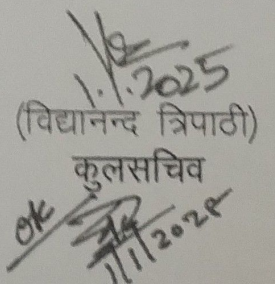 1.1.2025
(विद्यानन्द त्रिपाठी)
कुलसचिव
OK
1/1/2025